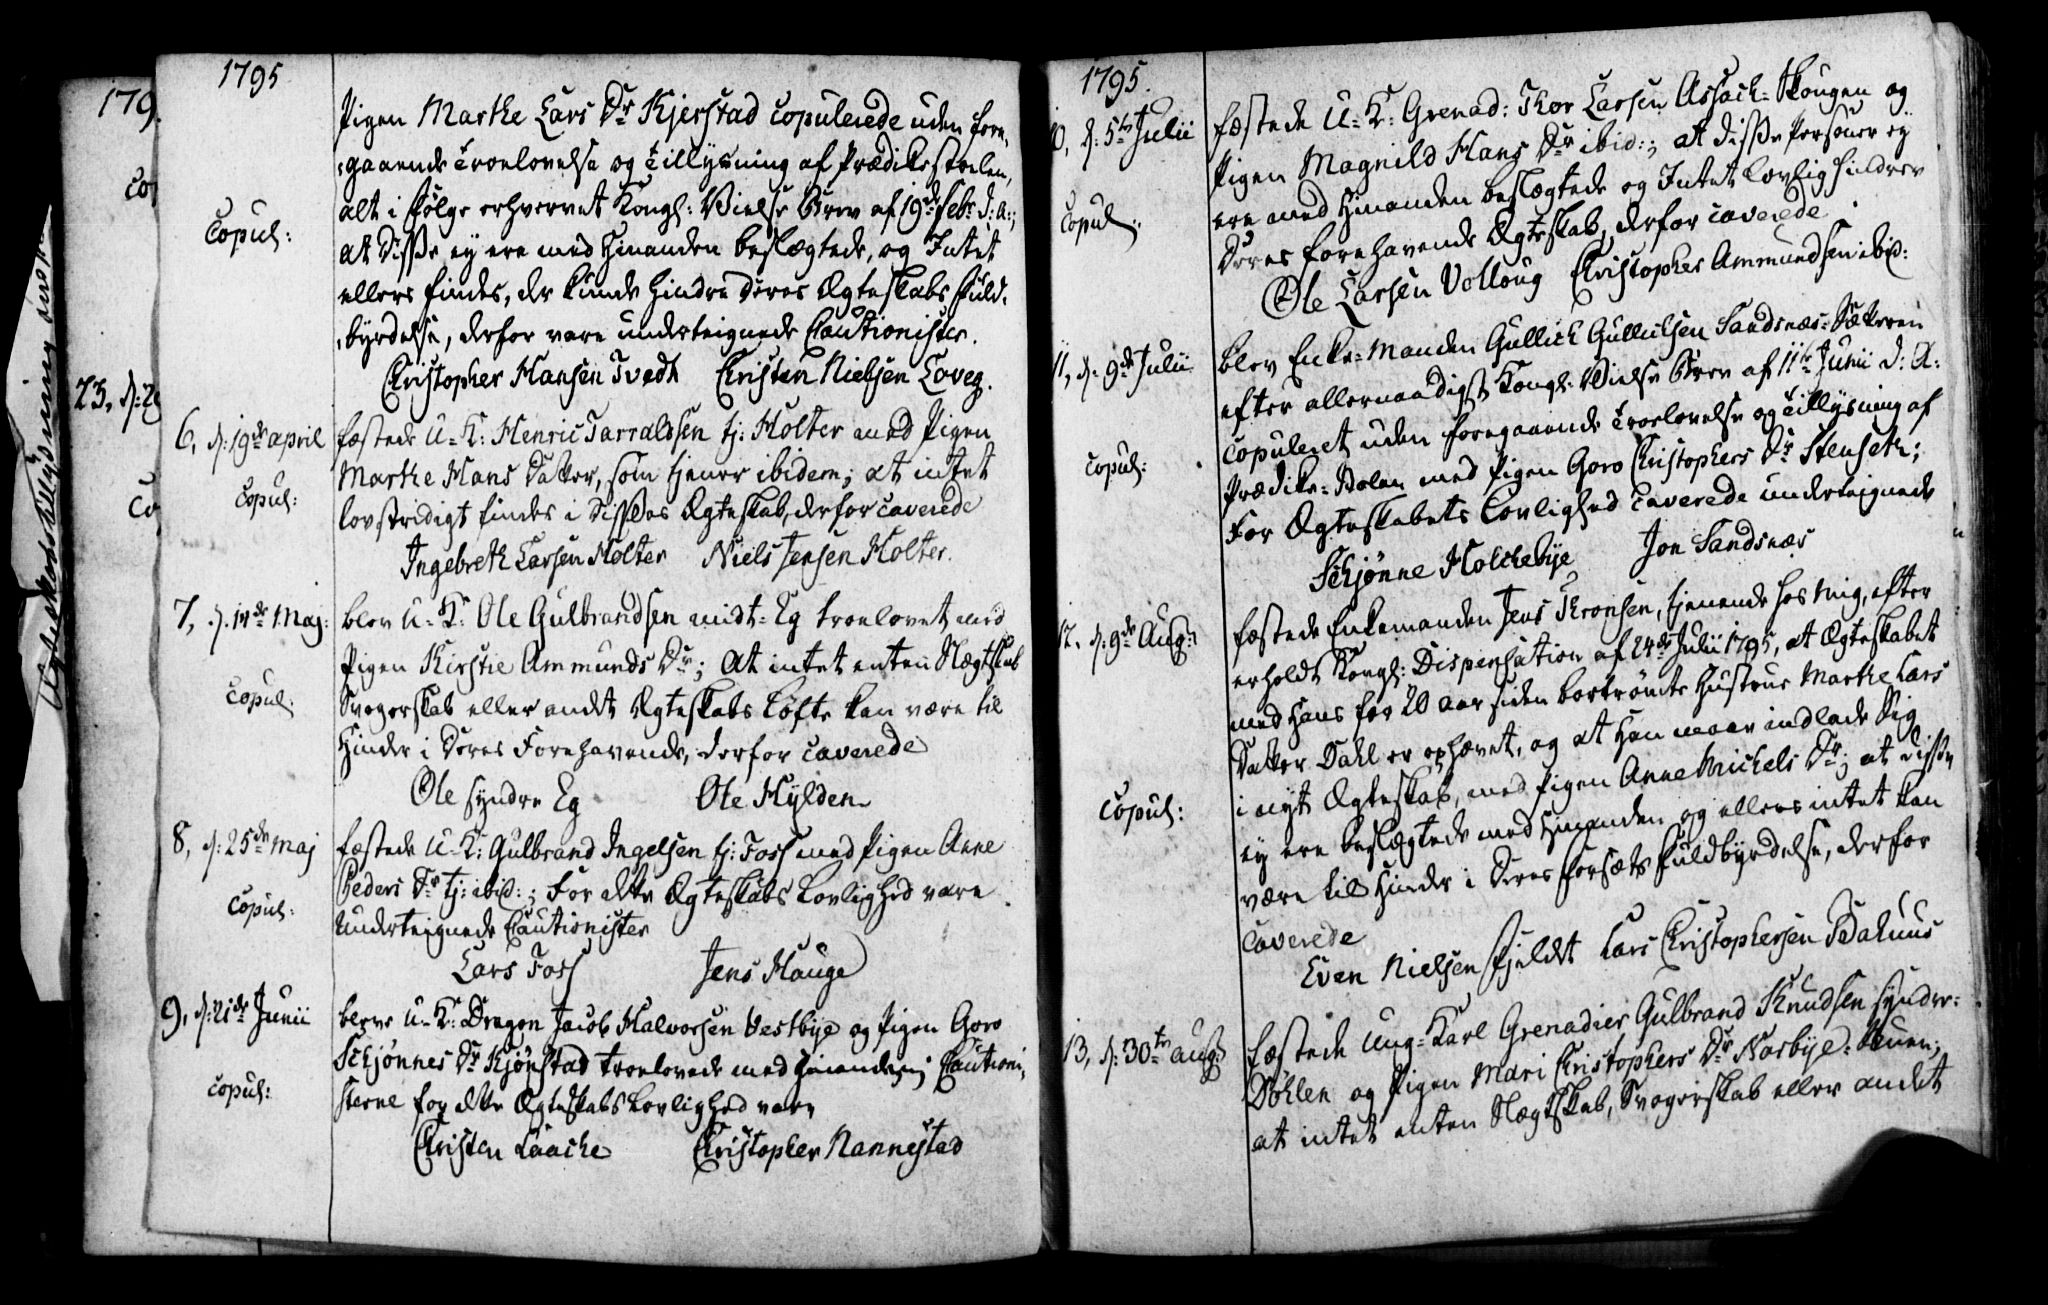 1795
Pigen Marthe Lars Dr Kjerstad copulerede uden fore-
gaaende Troelovelse og Tillysning af Prædikestoelen,
alt i følge erhvervet Kongl: Vielse Brev af 19de Febr d: A:;
Copul:
at Disse ey ere med Hinanden beslægtede, og Intet
ellers findes, der kunde hindre deres Ægteskabs Fuld-
byrdelse, derfor vare underteignede Cautionister.
Christopher Hansen Tvedt Christen Nielsen Loveg.
6, d: 19de april fæstede U-K: Henric Tarralssen tj: Holter med Pigen
Marthe Hans Datter, som tjener ibidem; at intet
Copul:
lovstridigt findes i Disses Ægteskab, derfor caverede
Ingebreth Larsen Holter Niels Jensen Holter.
7, d. 14de Maj: blev U-K: Ole Gulbrandsen midt-Eg troelovet med
Pigen Kirstie Ammunds Dr; At intet enten Slægtskab
Copul:
Svogerskab eller andet Ægteskabs Løfte kan være til
Hinder i Deres Forehavende, derfor caverede
Ole syndre Eg Ole Hylden
8, d: 25de Maj fæstede U-K: Gulbrand Ingelsen tj: Foss med Pigen Anne
Peders Dr tj: ibid:; For dette Ægteskabs Lovlighed vare
Copul:
Underteignede Cautionister
Lars Foss Jens Hauge
9, d: 21de Junii bleve U-K: Dragon Jacob Halvorsen Vestbye og Pigen Goro
Schjønnes Dr Kjønstad troelovede med Hinanden; Cautioni-
copul:
sterne for dette Ægteskabs Lovlighed vare
Christen Laache Christopher Nannestad
1795.
10, d: 5te Julii fæstede U-K: Grenad: Thor Larsen Assach-Skougen og
Pigen Magnild Hans Dr ibid:; at disse Personer ey
ere med Hinanden beslægtede og Intet lovlig hindrer
Copul:
Deres forehavende Ægteskab, derfor caverede
Ole Larsen Volloug Christopher Ammundsen ibid:
11, d: 9de Julii blev Enke-Manden Gullich Gullichsen Sandsnæs-Sæteren
efter allernaadigst Kongl: Vielse Brev af 11te Junii d: A:
copuleret uden foregaaende Troelovelse og Tillysning af
copul:
Prædike-Stolen med Pigen Goro Christophers Dr Stenseth;
For Ægteskabets Lovlighed caverede underteignede
Schjønne Holchebye Jon Sandsnæs
12, d: 9de Aug: fæstede Enkemanden Jens Thronsen, tjenende hos mig, efter
erholdt Kongl: Dispensation af 24de Julii 1795, at Ægteskabet
med Hans for 20 aar siden bortrømte Hustrue Marthe Lars
Datter Dahl er ophævet, og at Han maae indlade Sig
i nyt Ægteskab, med Pigen Anne Michels Dr; at disse
Copul:
ey ere beslægtede med Hinanden og ellers intet kan
være til Hinder i Deres Forsæts Fuldbyrdelse, derfor
caverede
Even Nielsen Fjeldet Lars Christophersen Bahuus
13, d: 30te Aug: fæstede Ung-Karl Grenadier Gulbrand Knudsen syndre-
Døhlen og Pigen Mari Christophers Dr Norbye-Stuen;
at intet enten Slægtskab, Svogerskab eller andet
179
Cop
23, d: 29
Co